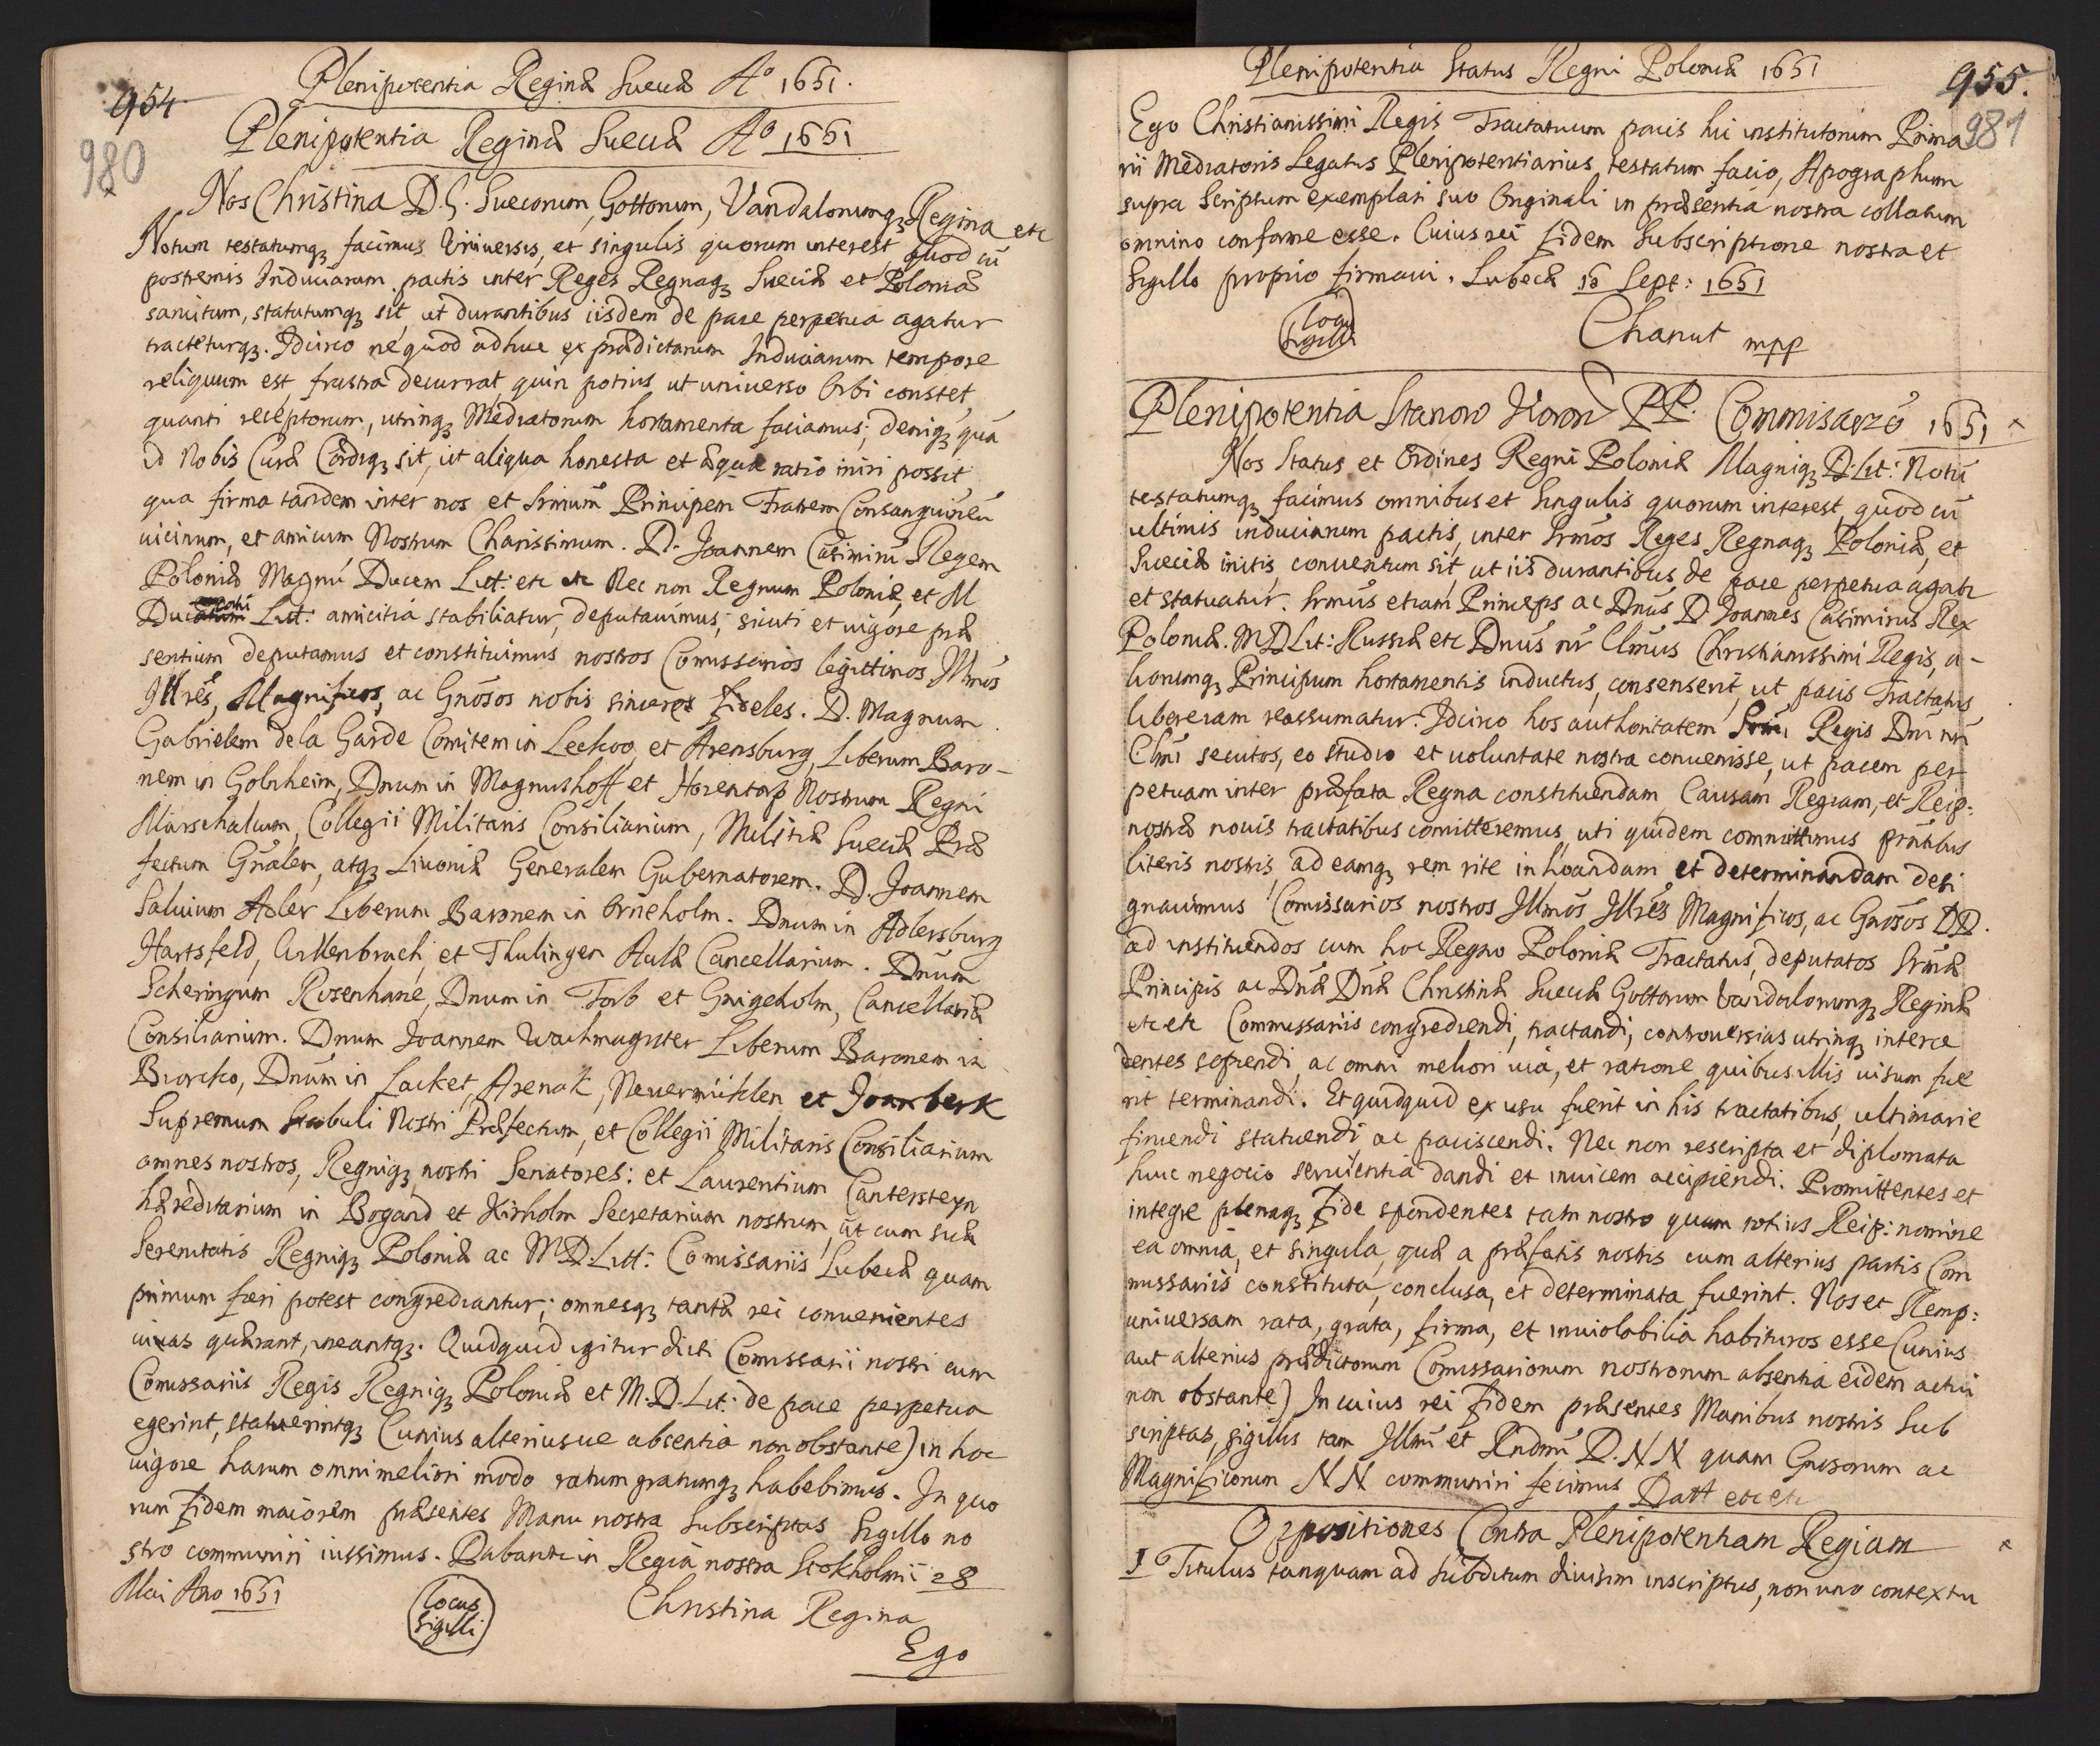 954
Plenipotentia Reginæ Sueciæ Aº 1651.
980
Plenipotentia Reginæ Sueciæ Aº 1651
Nos Christina D.G. Suecorum, Gottorum, Vandalorumqꝫ Regina etc
Notum testatumqꝫ facimus Vniuersis, et singulis quorum interest, quod cũ
postremis Induciarum pactis inter Reges Regnaqꝫ Sueciæ et Poloniæ
sancitum, statutumqꝫ sit, ut durantibus iisdem de pace perpetua agatur
tracteturqꝫ. Idcirco ne quod adhuc ex prædictarum Induciarum tempore
reliquum est, frustra decurrat, quin potius ut uniuerso Orbi constet,
quanti receptorum, utrinqꝫ Mediatorum hortamenta faciamus; deniqꝫ quã
id Nobis Curæ Cordiqꝫ sit, ut aliqua honesta et æqua ratio iniri possit
qua firma tandem inter nos et Srmum Principem Fratrem Consanguineũ
uicinum, et amicum Nostrum Charissimum. D. Joannem Casimirũ Regem
Poloniæ Magnũ Ducem Litt: etc etc Nec non Regnum Poloniæ, et M
Ducatum Litt: amicitia stabiliatur, deputauimus, sicuti et uigore præ
sentium deputamus et constituimus nostros Comissarios legittimos Illmos
Illres, Magnificos, ac Gnosos nobis sinceros fideles. D. Magnum
Gabrielem de la Garde Comitem in Leckoo et Arensburg, Liberum Baro-
nem in Golzheim, Dnum in Magnushoff et Horentorp Nostrum Regni
Marschalcum, Collegii Militaris Consiliarium, Militiæ Sueciæ Præ
fectum Gnalem, atqꝫ Liuoniæ Generalem Gubernatorem. D. Joannem
Saluium Adler Liberum Baronem in Örneholm. Dnum in Adlersburg
Hartsfeld, Wllenbruch, et Thulingen Aulæ Cancellarium. Dnum
Scheringum Rosenhane, Dnum in Torb et Gnigeholm, Cancellariæ
Consiliarium. Dnum Joannem Wachmagister Liberum Baronem in
Biorcko, Dnum in Lacket, Arenak, Neuermühlen et Joanberk
Supremum Stabuli Nostri Præfectum, et Collegii Militaris Consiliarium
omnes nostros, Regniqꝫ nostri Senatores: et Laurentium Cantersteyn
hæreditarium in Bogard et Kirholm Secretarium nostrum, ut cum suæ
Serenitatis Regniqꝫ Poloniæ ac M D. Litt: Comissariis Lubecæ quam
primum fieri potest congrediantur; omnesqꝫ tantæ rei conuenientes
uias quærant, ineantqꝫ. Quidquid igitur dicti Comissarii nostri cum
Comissariis Regis Regniqꝫ Poloniæ et M.D. Lit: de pace perpetua
egerint, statuerintqꝫ (unius alteriusue absentia non obstante) in hoc
uigore harum omni meliori modo ratum gratumqꝫ habebimus. In quo
rum fidem maiorem præsentes Manu nostra Subscriptas Sigillo no
stro communiri iussimus. Dabantur in Regia nostra Stokholmii 28
Maii Ano 1651
Locus Sigilli
Christina Regina
Ego
Plenipotentia Status Regni Poloniæ 1651
955.
981
Ego Christianissimi Regis Tractatuum pacis hic institutorum Prima
rii Mediatoris Legatus Plenipotentiarius, testatum facio, Apographum
supra Scriptum exemplari suo Originali in præsentia nostra collatum
omnino conforme esse. Cuius rei fidem Subscriptione nostra et
Sigillo proprio firmaui. Lubecæ 16 Sept: 1651
Locus Sigilli
Chanut mpp
Plenipotentia Stanow Koron PP. Commisarzó 1651
Nos Status et Ordines Regni Poloniæ Magniqꝫ D. Lit: Notũ
testatumqꝫ facimus omnibus et Singulis quorum interest, quod cũ
ultimis induciarum pactis, inter Srmos Reges Regnaqꝫ Poloniæ, et
Sueciæ initis, conuentum sit, ut iis durantibus de pace perpetua agatr
et statuatur. Srmus etiam Princeps ac Dnus D Joannes Casimirus Rex
Poloniæ. MDLit: Russiæ etc Dnus nr Clmus Christianissimi Regis, a-
liorumqꝫ Principum hortamentis inductus, consenserit, ut pacis Tractatus
libere iam reassumatur. Idcirco hos authoritatem Srmi Regis Dni nri
Clmi secutos, eo studio et uoluntate nostra conuenisse, ut pacem per
petuam inter præfata Regna constituendam Causam Regiam, et Reip:
nostræ nouis tractatibus comitteremus, uti quidem committimus prntibus
literis nostris, ad eamqꝫ rem rite inchoandam et determinandam desi
gnauimus Comissarios nostros Illmos Illres Magnificos, ac Gnosos DD.
ad instituendos cum hoc Regno Poloniæ Tractatus, deputatos Srmæ
Principis ac Dnæ Dnæ Christinæ Sueciæ Gottorum Vandalorumqꝫ Reginæ
etc etc Commissariis congrediendi, tractandi, controuersias utrinqꝫ interce
dentes sopiendi, ac omni meliori uia, et ratione quibus illis uisum fue
rit terminandi. Et quidquid ex usu fuerit in his tractatibus, ultimarie
finiendi statuendi ac paciscendi. Nec non rescripta et diplomata
huic negocio seruientia dandi et inuicem accipiendi. Promittentes et
integre plenaqꝫ fide spondentes tam nostro quam totius Reip: nomine
ea omnia, et singula, quæ a præfatis nostris cum alterius partis Com
missariis constituta, conclusa, et determinata fuerint. Nos et Remp:
uniuersam rata, grata, firma, et inuiolabilia habituros esse (unius
aut alterius prædictorum Comissariorum nostrorum absentia eidem actui
non obstante) In cuius rei fidem præsentes Manibus nostris Sub
scriptas, sigillis tam Illmi et Rndmi D. N N quam Gnosorum ac
Magnificorum N N communiri fecimus Datt etc etc
Oppositiones Contra Plenipotentiam Regiam
1º Titulus tanquam ad Subditum diuisim inscriptus, non uno contextu